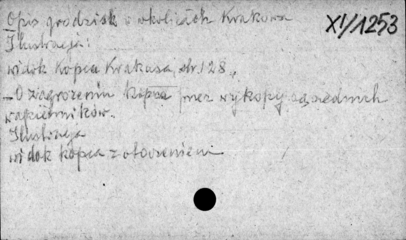 Opis grodzisk w okolicach Krakowa
XI/1253
Ilustracja:
widok Kopca Krakusa, str. 128.,
- O zagrożeniu kopca przez wykopy sąsiednich
wapienników.
Ilustracja
widok kopca z otoczeniem